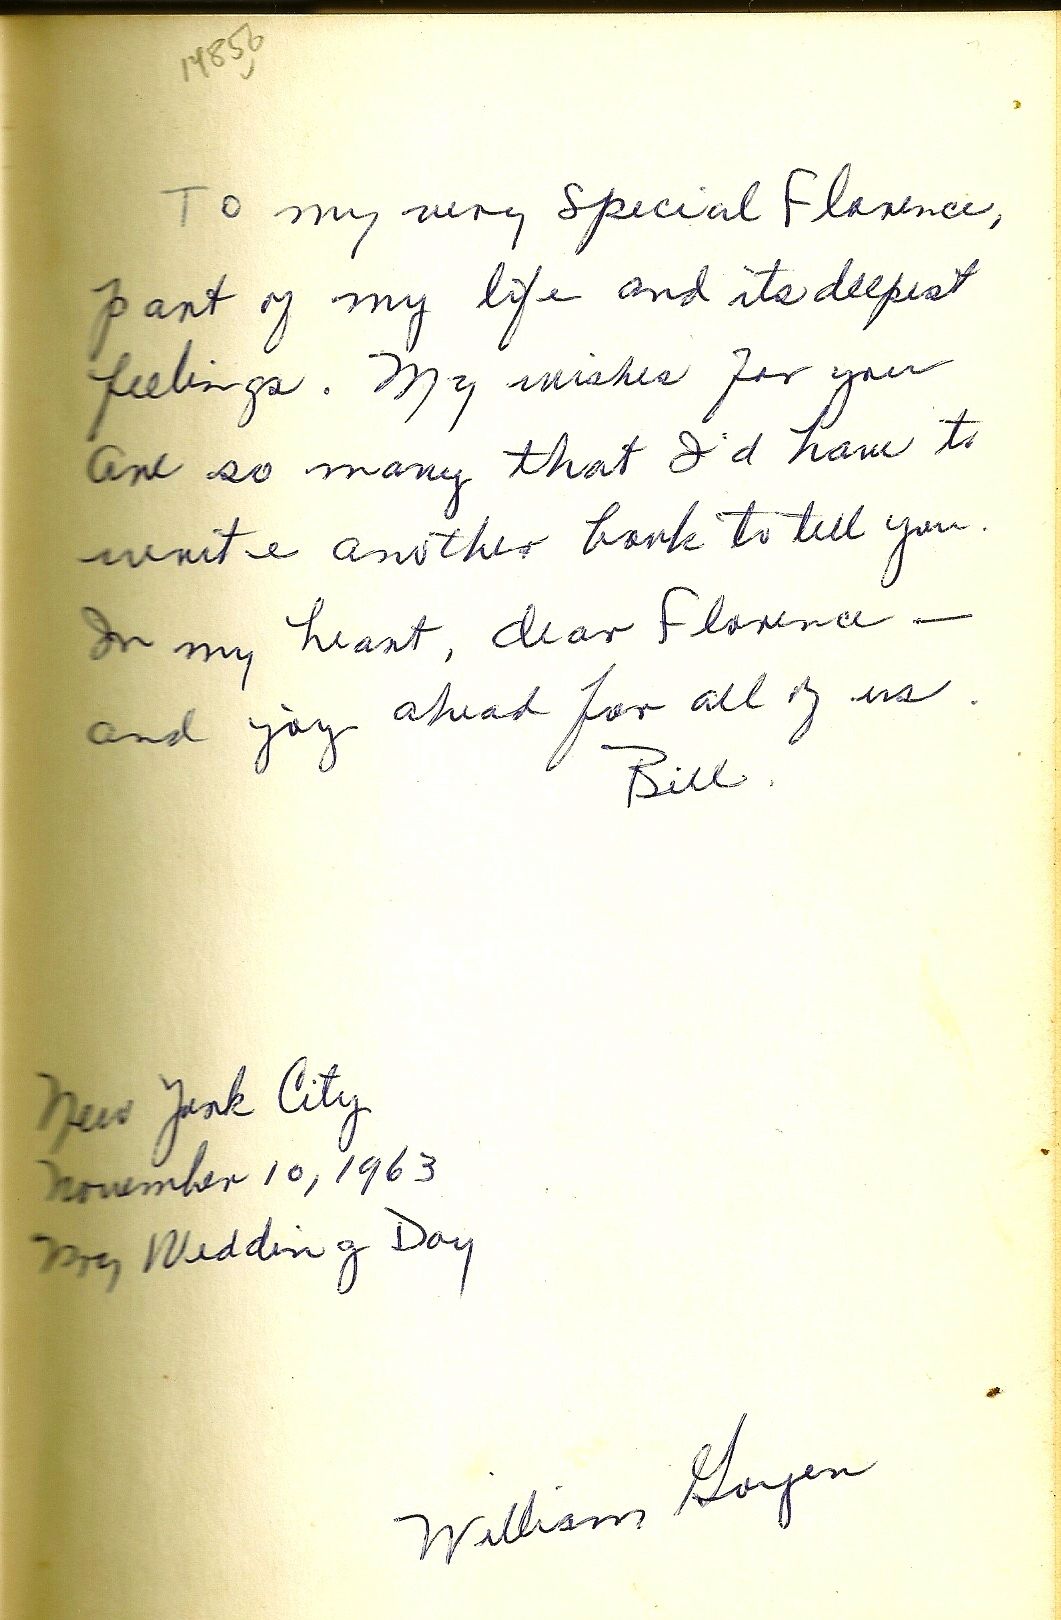 14856
To my very special Florence,
part of my life and its deepest
feelings. My wishes for you
are so many that I'd have to
write another book to tell you.
In my heart, dear Florence —
and joy ahead for all of us.
Bill.
New York City
November 10, 1963
My Wedding Day
William Goyen